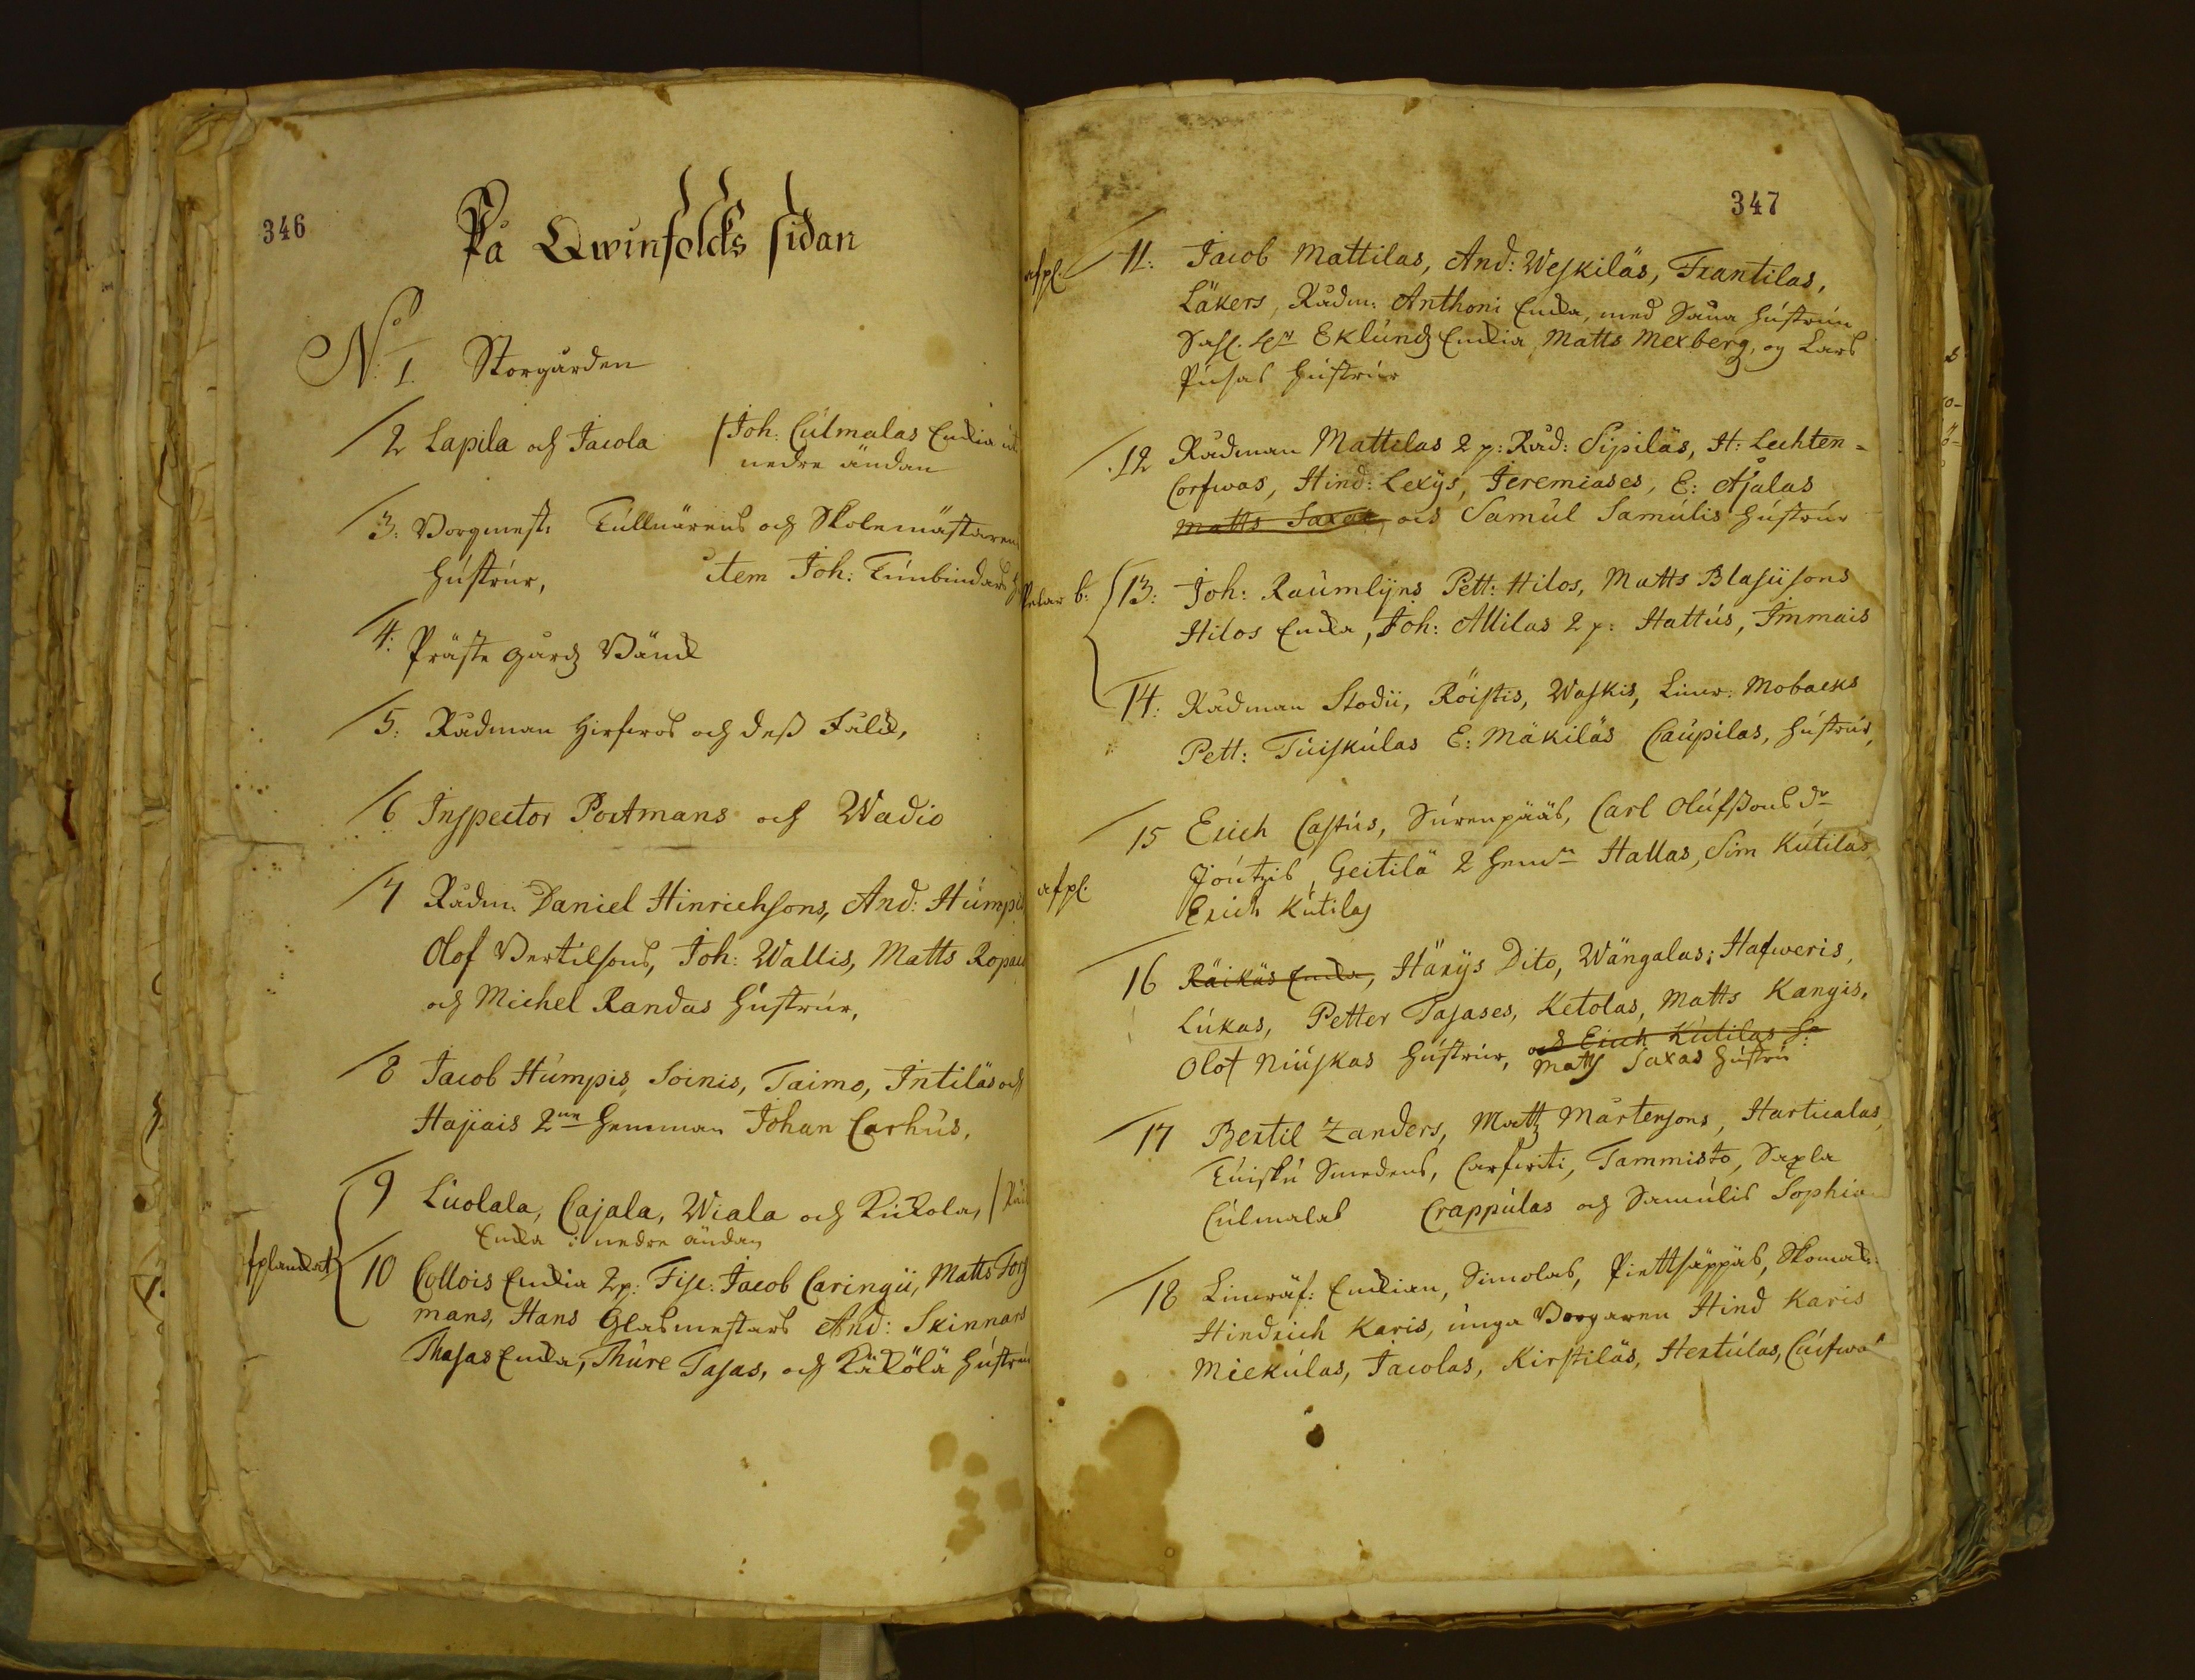 346
På Qwinfolcks sidan
No: 1. Storgården
2 Lapila och Jacola / Joh: Cúlmalas Enckia i
nedre ändan
3: Borgmest: Tullnärens och Skolemästarens
hústrúr, item Joh: Túnbindars
4: Präste gårdz Bänck
5: Rådman Hirfwos och dess Fålck,
6 Inspector Portmans och Wadio
7 Rådm: Daniel Hinrichsons, And: Húmpis
Olof Bertilsons, Joh: Wallis, Matts Ropau
och Michel Randas hústrúr,
8 Jacob Húmpis, Soinis, Taimo, Intiläs och
Hajiais 2ne hemman Johan Carhús,
9 Lúolala, Cajala, Wiala och Kúckola, /
Encka i nedre ändan
fplanckat
10 Collois Enckia 2 p: Fisc: Jacob Caringii, Matts Tors
mans, Hans Glasmestars And: Skinnars
Thasas Encka, Thúre Tasas, och Räckölä hústrúr
347
afpl.
11: Jacob Mattilas, And: Weskiläs, Frantilas,
Läkers, Rådm: Anthoni Encka, med Såna hústrún
Sahl. Hr Eklúndz Enckia, Matts Mexberg, og Lars
Púsas hústrúr
12 Rådman Mattilas 2 p: Råd: Sipiläs, H: Lechten-
Corfwas, Hind: Lexÿs, Jeremiases, E: Ajalas
Matts Saxas, och Samúl Samúlis hústrúr
b:
13: Joh: Raúmlÿns Pett: Hilos, Matts Blasiisons
Hilos Encka, Joh: Allilas 2 p: Hattús, Immais
14: Rådman Stodii, Röistis, Waskis, Linw: Mobacks
Pett: Túiskúlas E: Mäkiläs Caúpilas, hústrúr,
15 Erich Castús, Súrenpääs, Carl Olúfssons dr
Joútzis, Geitilä 2 hemn Hallas, Sim Kútilas,
afpl.
Erich Kútilas
16 Räikäs Encka, Härÿs Dito, Wängalas, Hafweris,
Lúkas, Petter Tasases, Ketolas, Matts Kangis,
Olof Niúskas hústrúr, och Erich Kútilas h:
Matts Saxas hústrú
17 Bertil Zanders, Mattz Mårtensons, Harticalas,
Túiskú Smedens, Carfwiti, Tammisto, Saxla
Cúlmalas Crappúlas och Samúlis Sophia
18 Linwäf: Enckian, Simolas, Piettsäppäs, Skomak:
Hindrich Karis, únga Borgaren Hind Karis
Mickúlas, Jacolas, Kirstiläs, Hertúlas, Cúifwa